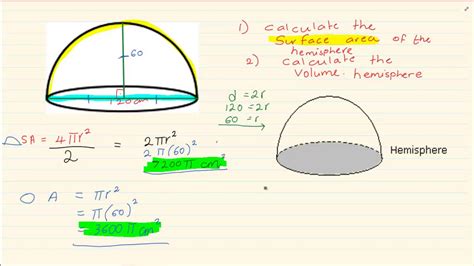 1) Calculate the
Surface area of the
hemisphere
2) Calculate the
Volume. hemisphere
60
120cm
d = 2r
120 = 2r
60 = r
SA = 4πr² / 2 = 2πr²
2π(60)²
7200π cm²
Hemisphere
A = πr²
= π(60)²
= 3600π cm²